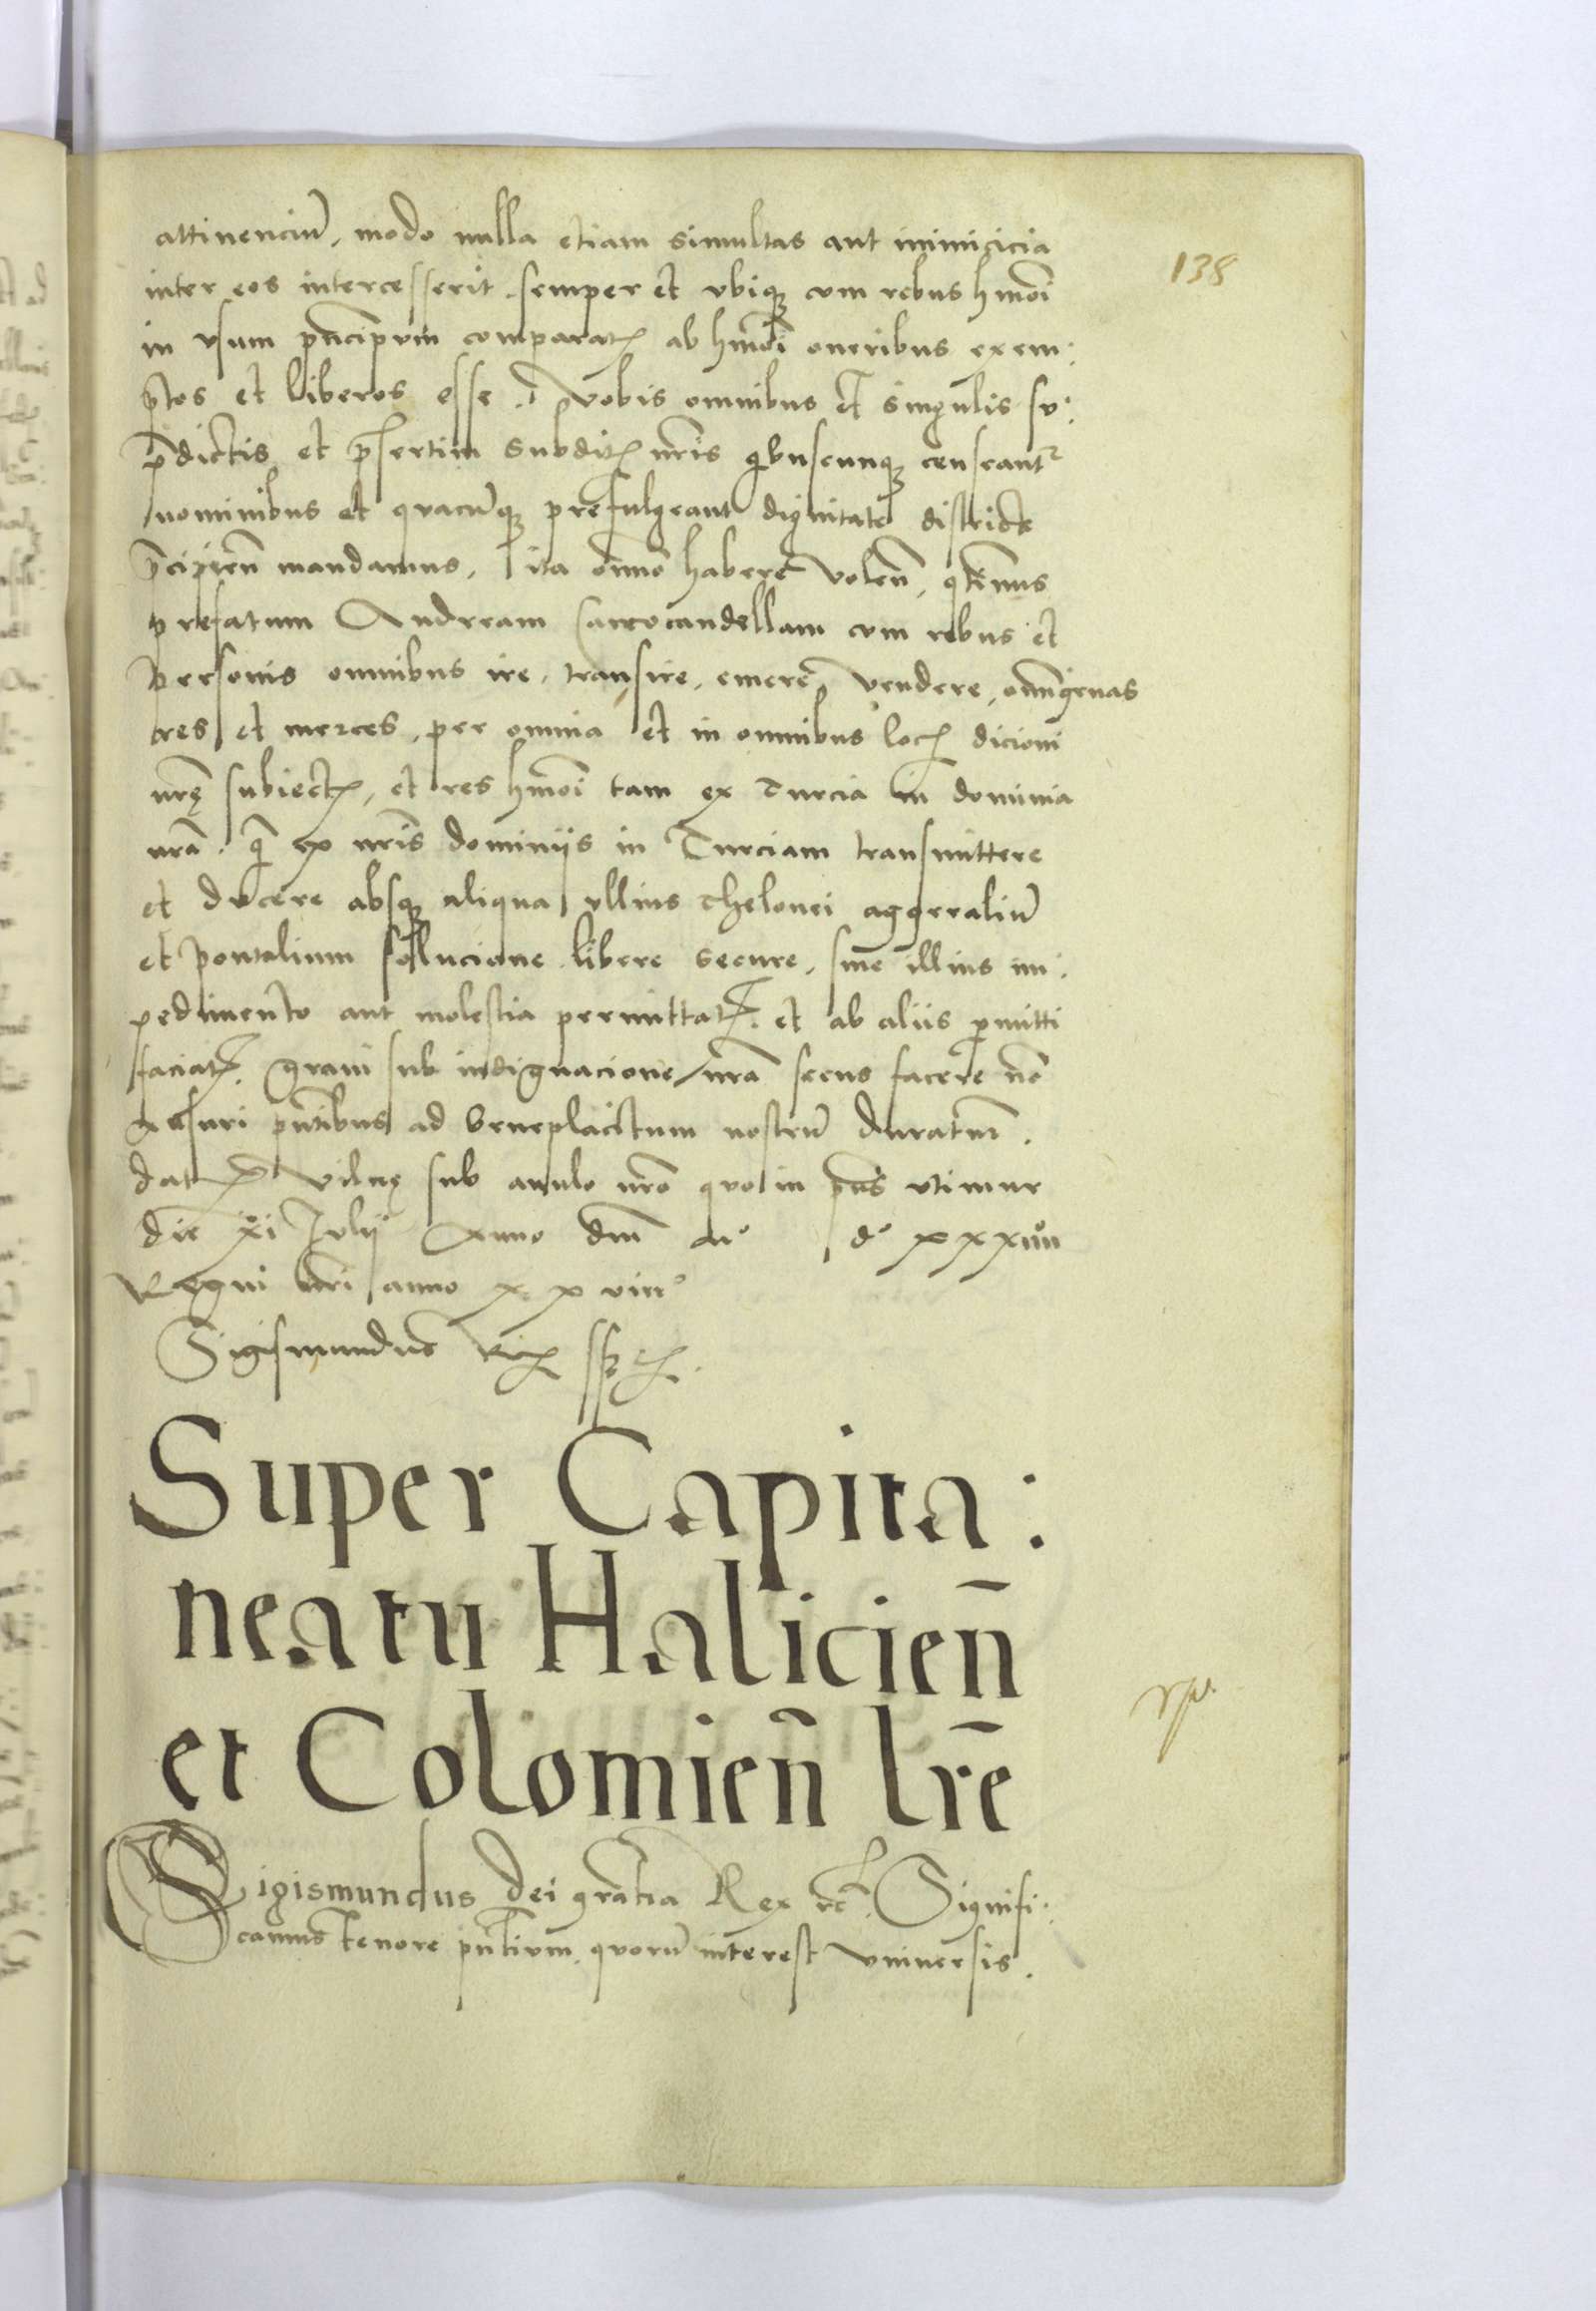 attinenciū, modo nulla etiam simultas aut inimicicia
138
inter eos intercesserit. semper et vbiqȝ cum rebus hmōi
in vsum pn̄cipum comparatꝭ ab hmōi oneribus exem:
ptos et liberos esse. Vobis omnibus et singulis su:
p̄dictis et p̄sertim subditꝭ nr̄is qibuscunqȝ censeantr
nominibus et quacūqȝ prefulgeant dignitate districte
p̄cipien̄ mandamus, ita om̄no habere volen̄, qtn̄us
prefatum Andream carcocandellam cum rebus et
personis omnibus ire, transire, emere, vendere, omn̄igenas
res et merces, per omnia et in omnibus locꝭ dicioni
nrę̄ subiectꝭ, et res hmōi tam ex Turcia in dominia
nrā. qͣ ex nr̄is dominijs in Turciam transmittere
et ducere absqȝ aliqua vllius thelonei aggeraliū
et pontalium sollucione libere secure, sine illius im:
pedimento aut molestia permittatꝭ. et ab aliis ꝑmitti
faciatꝭ. graui sub indignacione nrā secus facere nō
ausuri pn̄tibus ad beneplacitum nostrū duraturꝭ.
datꝭ Vilnę sub anulo nrō quo in pn̄s vtimur
die xi Iulij Anno dn̄i Mͦ dͦ xxxiiii
Regni nr̄i anno xxviiiͦ
Sigismundus Rex ssꝭ
Super Capita:
neatu Halicien̄
et Colomien̄ lr̄e
Sigismundus Dei gratia Rex rc̄. Signifi:
camus tenore pn̄tium. quorū interest vniuersis.